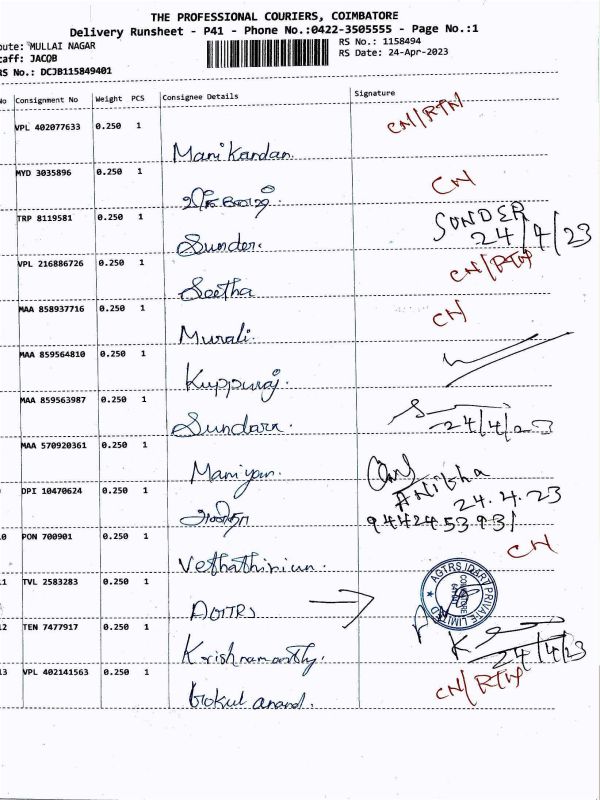 THE PROFESSIONAL COURIERS, COIMBATORE
Delivery Runsheet - P41 - Phone No.:0422-3505555 - Page No.:1
oute: MULLAI NAGAR
RS No.: 1158494
taff: JACOB
RS Date: 24-Apr-2023
RS No.: DCJB115849401
No Consignment No Weight PCS Consignee Details Signature
VPL 402077633 0.250 1 Manikandan CN/RTN
MYD 3035896 0.250 1 CN
TRP 8119581 0.250 1 Sunder. SUNDER
24/4/23
VPL 216886726 0.250 1 Seetha CN/RTN
MAA 858937716 0.250 1 Murali. CN
MAA 859564810 0.250 1 Kuppuraj.
MAA 859563987 0.250 1 Sundara 24/4/23
MAA 570920361 0.250 1 Maniyan.
9 DPI 10470624 0.250 1 அனிதா ANibha
24.4.23
9442453931
10 PON 700901 0.250 1 Vethathirium. CN
11 TVL 2583283 0.250 1 AGTRS AGTRS IDART PRIVATE LIMITED
COIMBATORE
12 TEN 7477917 0.250 1 Krishnamoorthy. 24/4/23
13 VPL 402141563 0.250 1 Gokul anand. CN/RTN